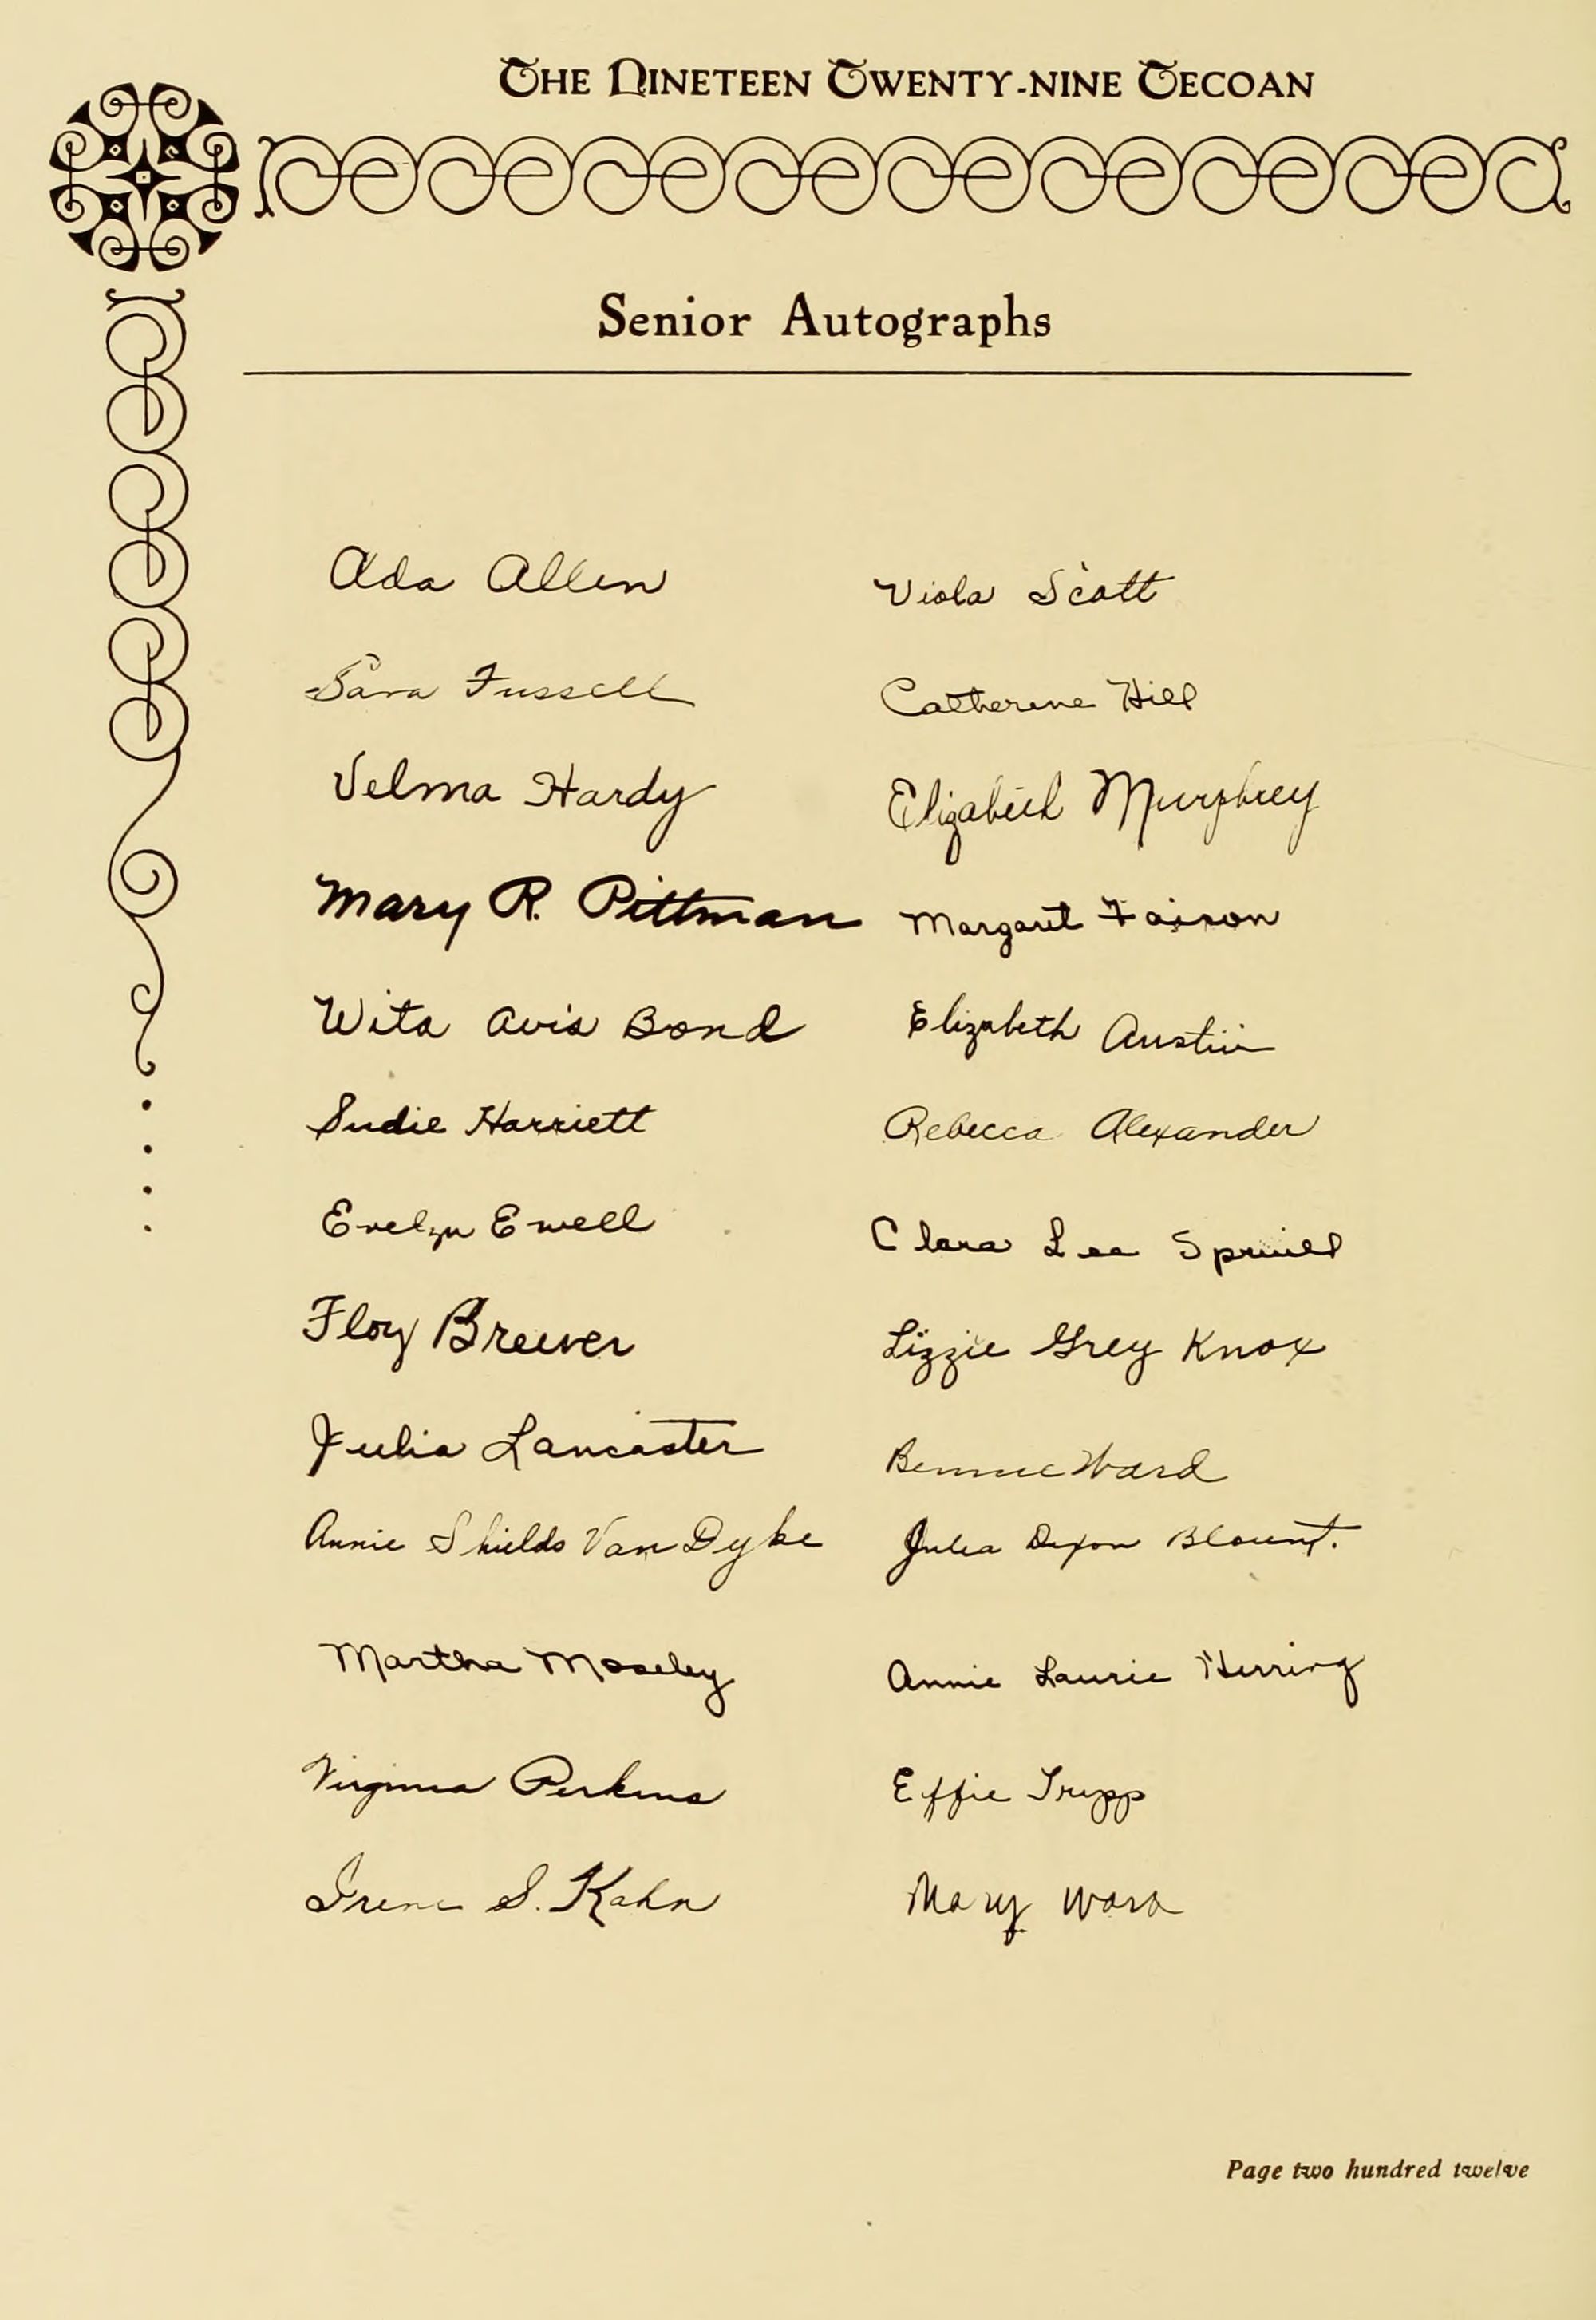 The Nineteen Twenty-nine Tecoan
Senior Autographs
Ada Allen
Viola Scott
Sara Fussell
Catherine Hill
Velma Hardy
Elizabeth Murphrey
Mary R. Pittman
Margaret Faison
Wita Avis Bond
Elizabeth Austin
Sudie Harriett
Rebecca Alexander
Evelyn Ewell
Clara Lee Spruill
Floy Brewer
Lizzie Grey Knox
Julia Lancaster
Bennie Ward
Annie Shields Van Dyke
Julia Dixon Blount.
Martha Moseley
Annie Laurie Herring
Virginia Perkins
Effie Tripp
Irene S. Kahn
Mary
Page two hundred twelve